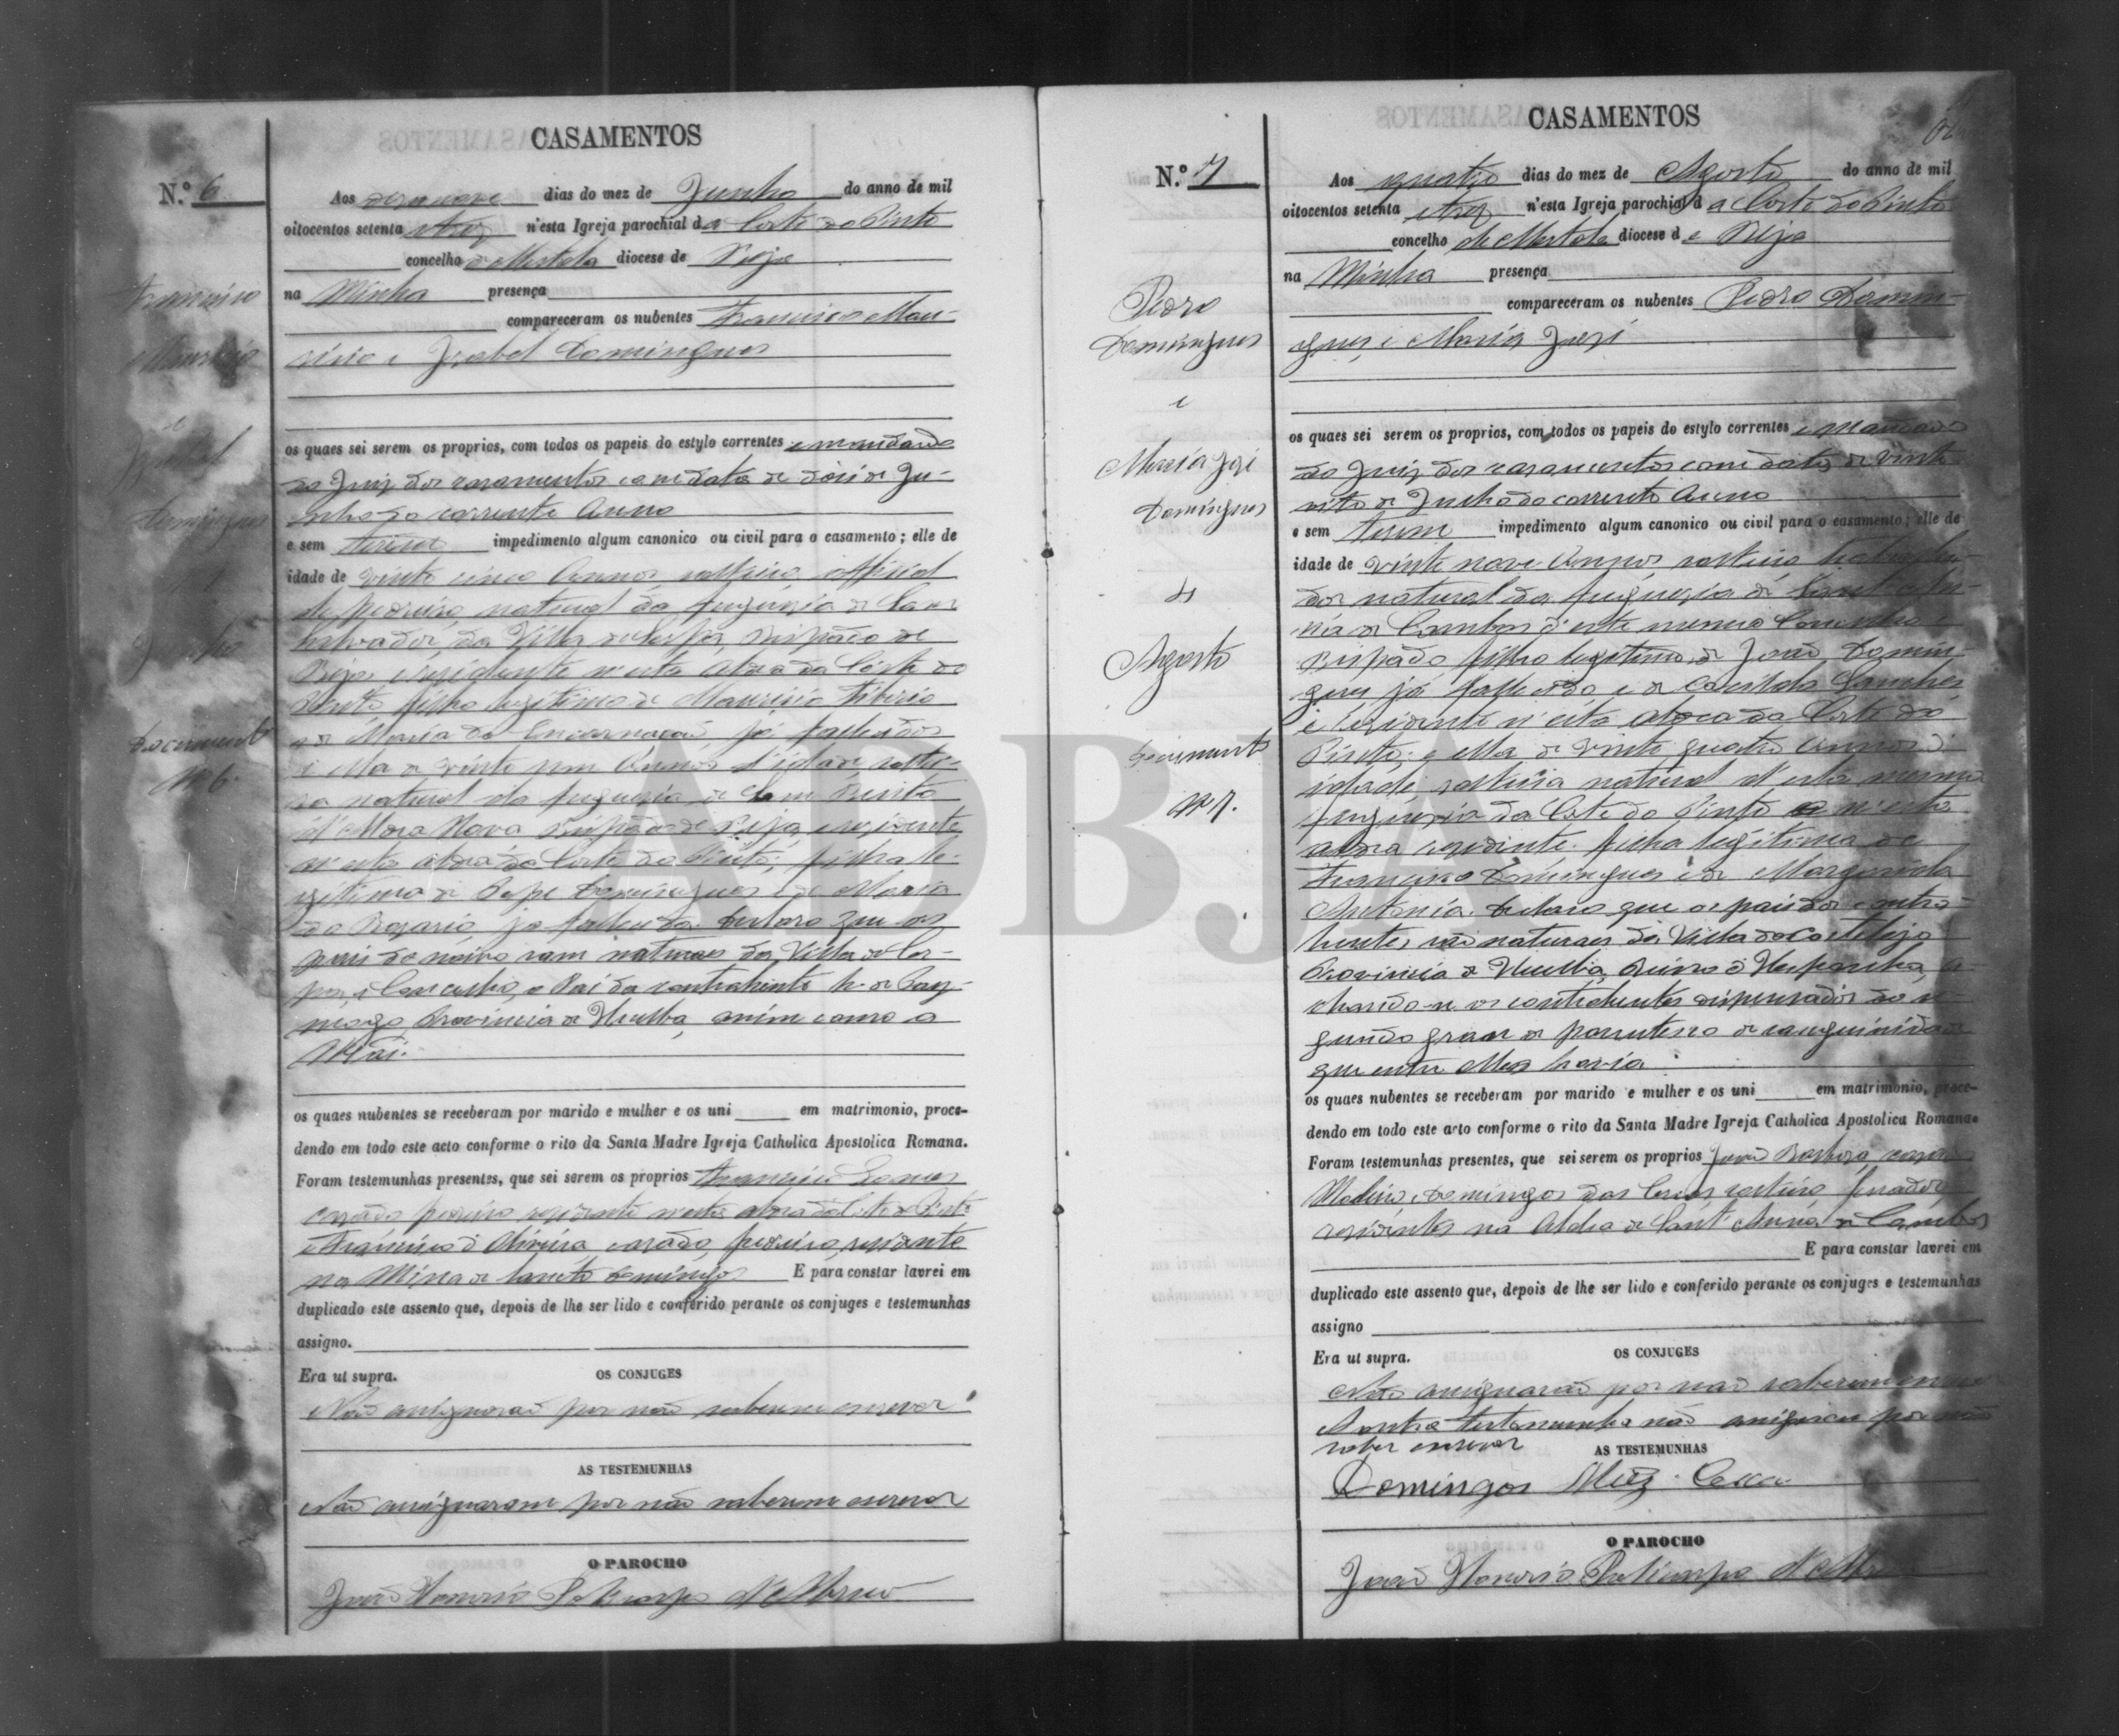 CASAMENTOS
N.º 6
Aos desanove dias do mez de Junho do anno de mil
oitocentos setenta e trez n'esta Igreja parochial da Corte do Pinto
concelho de Mertola diocese de Beja
na Minha presença
compareceram os nubentes Francisco Mau-
ricio e Izabel Domingues
os quaes sei serem os proprios, com todos os papeis do estylo correntes e mandado
do Juiz dos casamentos com data de dois de Ju-
nho do corrente Anno
e sem terem impedimento algum canonico ou civil para o casamento; elle de
idade de vinte cinco Annos, solteiro, official
de pedreiro, natural da freguezia de Sam
Salvador, da Villa de Serpa, Bispado de
Beja, e residente n'esta Aldea da Corte do
Pinto filho legitimo de Mauricio Tiberio
e de Maria da Encarnação já fallecidos
e ella de vinte um Annos d'idade soltei-
ra natural da freguezia de Sam Bento
d'Aldea Nova Bispado de Beja, e residente
n'esta aldea da Corte do Pinto; filha le-
gitima de Pepe Domingues e de Maria
do Rozario, já fallecida. Declaro que os
pais do noivo sam naturaes da Villa de Ser-
pa, e Concelho, o Pai da contrahente he de Pay-
mogo, Provincia de Huelba, assim como a
Mãi.
os quaes nubentes se receberam por marido e mulher e os uni em matrimonio, proce-
dendo em todo este acto conforme o rito da Santa Madre Igreja Catholica Apostolica Romana.
Foram testemunhas presentes, que sei serem os proprios Francisco
casado pedreiro residente n'esta aldea da Corte do Pinto
e Francisco d'Oliveira, casado, pedreiro, residente
na Mina de Sancto Domingos E para constar lavrei em
duplicado este assento que, depois de lhe ser lido e conferido perante os conjuges e testemunhas
assigno.
Era ut supra. OS CONJUGES
Não assignarão por não saberem escrever
AS TESTEMUNHAS
Não assignaram por não saberem escrever
O PAROCHO
João Honorio Policarpo d'
Francisco
Mauricio
e
Izabel
Domingues
Junho
Documento
Nº 6.
CASAMENTOS
N.º 7
Aos quatro dias do mez de Agosto do anno de mil
oitocentos setenta e trez n'esta Igreja parochial da Corte do Pinto
concelho de Mertola diocese de Beja
na Minha presença
compareceram os nubentes Pedro Domin-
gues, e Maria José
os quaes sei serem os proprios, com todos os papeis do estylo correntes e mandado
do Juiz dos casamentos com data de vinte
oito de Julho do corrente Anno
e sem terem impedimento algum canonico ou civil para o casamento; elle de
idade de vinte nove Annos, solteiro, trabalha-
dor natural da freguezia de Sant'An-
na de Cambas d'este mesmo Concelho e
Bispado filho legitimo de João Domin-
gues já fallecido e de Sanches
e residente n'esta Aldea da Corte do
Pinto; e ella de vinte quatro Annos d'
idade solteira natural d'esta mesma
freguezia da Corte do Pinto n'esta
aldea residente. filha legitima de
Francisco Domingues e de Margarida
Antonia. Declaro que os pais dos contra-
hentes são naturaes da Villa do Castelejo
Provincia de Huelba, Reino d'Hespanha, a-
chando-se os contrahentes dispensados do se-
gundo grau de parentesco de sanguinidade
que entre elles havia
os quaes nubentes se receberam por marido e mulher e os uni em matrimonio, proce-
dendo em todo este acto conforme o rito da Santa Madre Igreja Catholica Apostolica Romana.
Foram testemunhas presentes, que sei serem os proprios João Barboza, casado
Domingos solteiro
residentes na Aldea de Sant'Anna de Cambas
E para constar lavrei em
duplicado este assento que, depois de lhe ser lido e conferido perante os conjuges e testemunhas
assigno
Era ut supra. OS CONJUGES
Não assignarão por não saberem
A outra testemunha não assignou por não
saber escrever AS TESTEMUNHAS
Domingos
O PAROCHO
João Honorio Policarpo
Pedro
Domingues
e
Maria José
Domingues
4
Agosto
Documento
Nº 7.
ADBJA